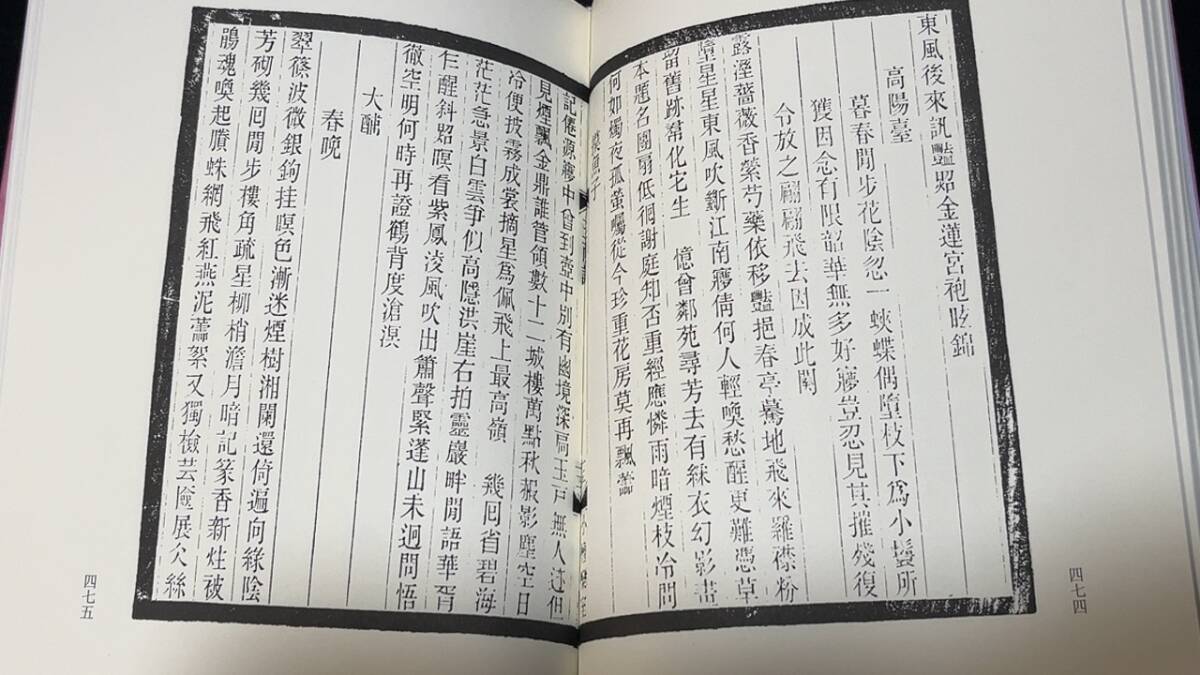 東風後來訊豔照金蓮宮袍眩錦
高陽臺
暮春閒步花陰忽一蛺蝶偶墮枝下爲小鬟所
獲因念有限韶華無多好夢豈忍見其摧殘復
令放之翩翩飛去因成此闋
露溼薔薇香縈芍藥依移豔挹春亭驀地飛來羅襟粉
墮星星東風吹斷江南夢倩何人輕喚愁醒更難憑草
留舊跡幇化它生 憶曾鄰苑尋芳去有綵衣幻影畫
本題名團扇低徊謝庭知否重經應憐雨暗煙枝冷問
何如燭夜孤螢囑從今珍重花房莫再飄蕭
子
記僊源夢中曾到壺中別有幽境深扃玉戸無人迋但
見煙飄金鼎誰管領數十二城樓萬點秋菽影塵空日
冷便披霧成裳摘星爲佩飛上最高嶺 幾回省碧海
茫茫急景白雲爭似高隱洪崖右拍靈巖畔閒語華胥
仁醒斜照暝看紫鳳凌風吹出簫聲緊蓬山未迥問悟
徹空明何時再證鶴背度滄溟
大酺
春晚
翠篠波微銀鉤挂暝色漸迷煙樹湘闌還倚遍向綠陰
芳砌幾回閒步樓角疏星柳梢澹月暗記篆香新炷被
鵑魂喚起賸蛛網飛紅燕泥蕭絮又獨檢芸奩展久絲
四七四
四七五